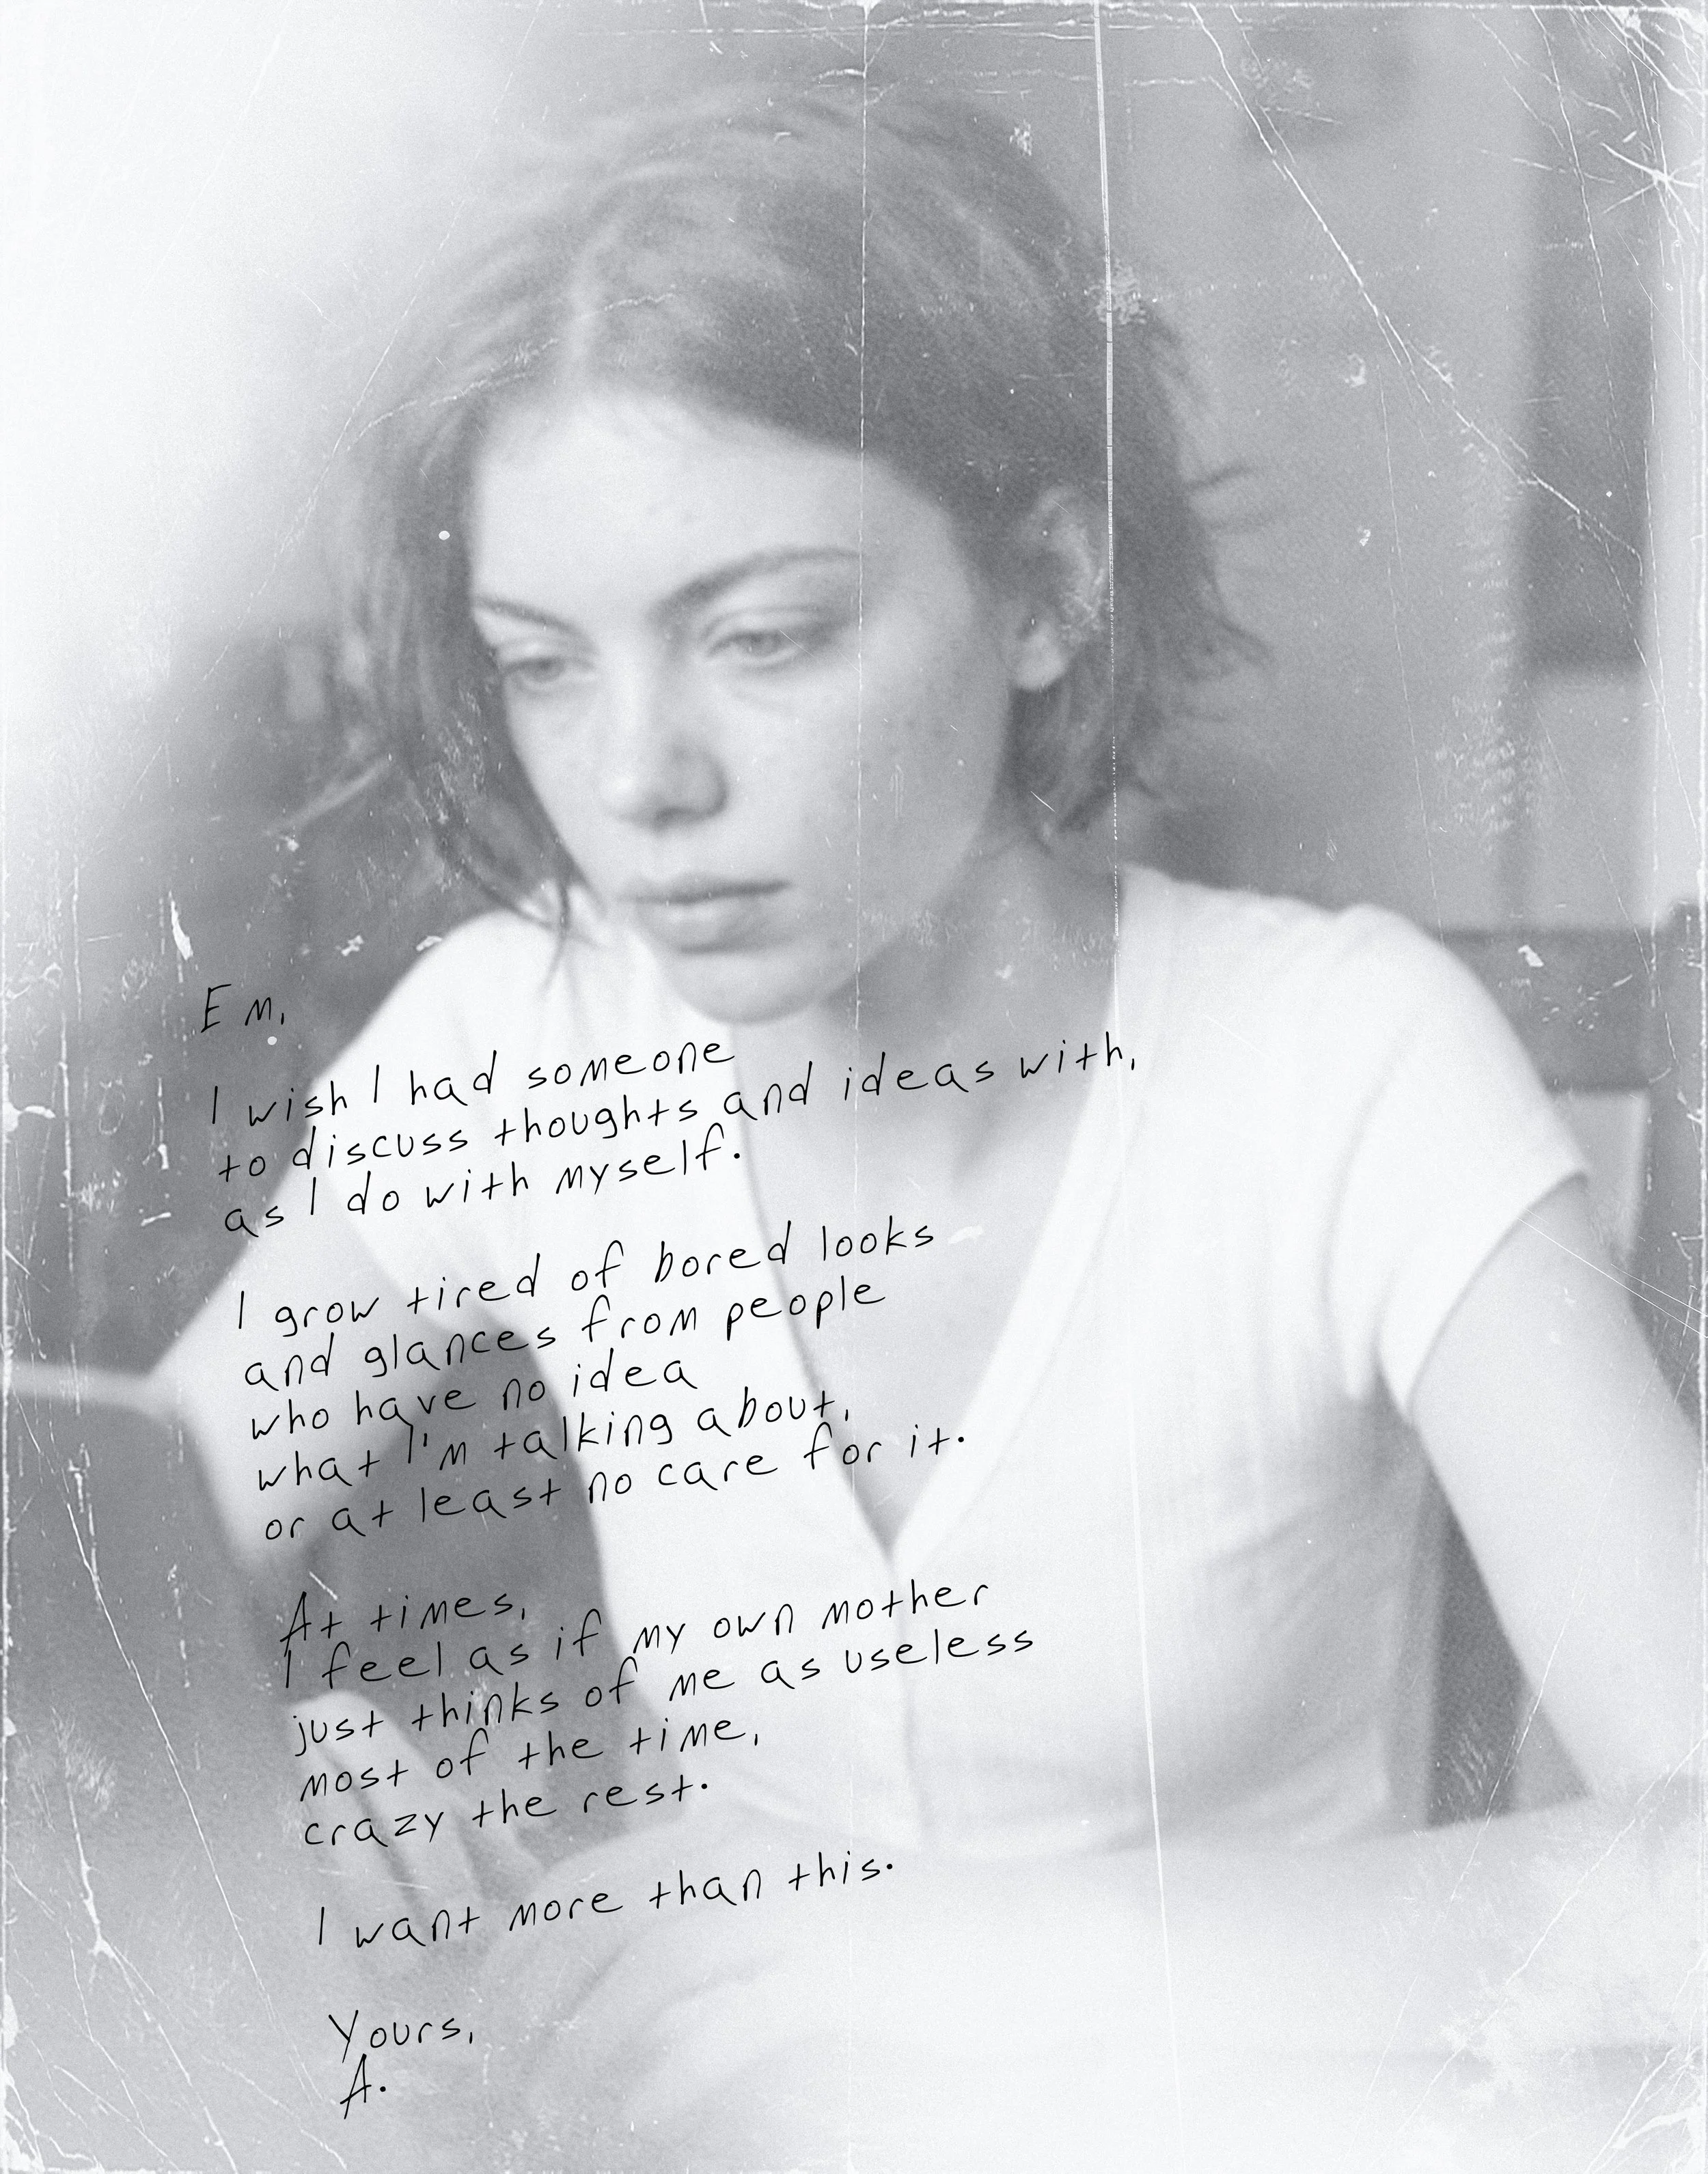 Em,
I wish I had someone
to discuss thoughts and ideas with,
as I do with myself.
I grow tired of bored looks
and glances from people
who have no idea
what I'm talking about,
or at least no care for it.
At times,
I feel as if my own mother
just thinks of me as useless
most of the time,
crazy the rest.
I want more than this.
Yours,
A.